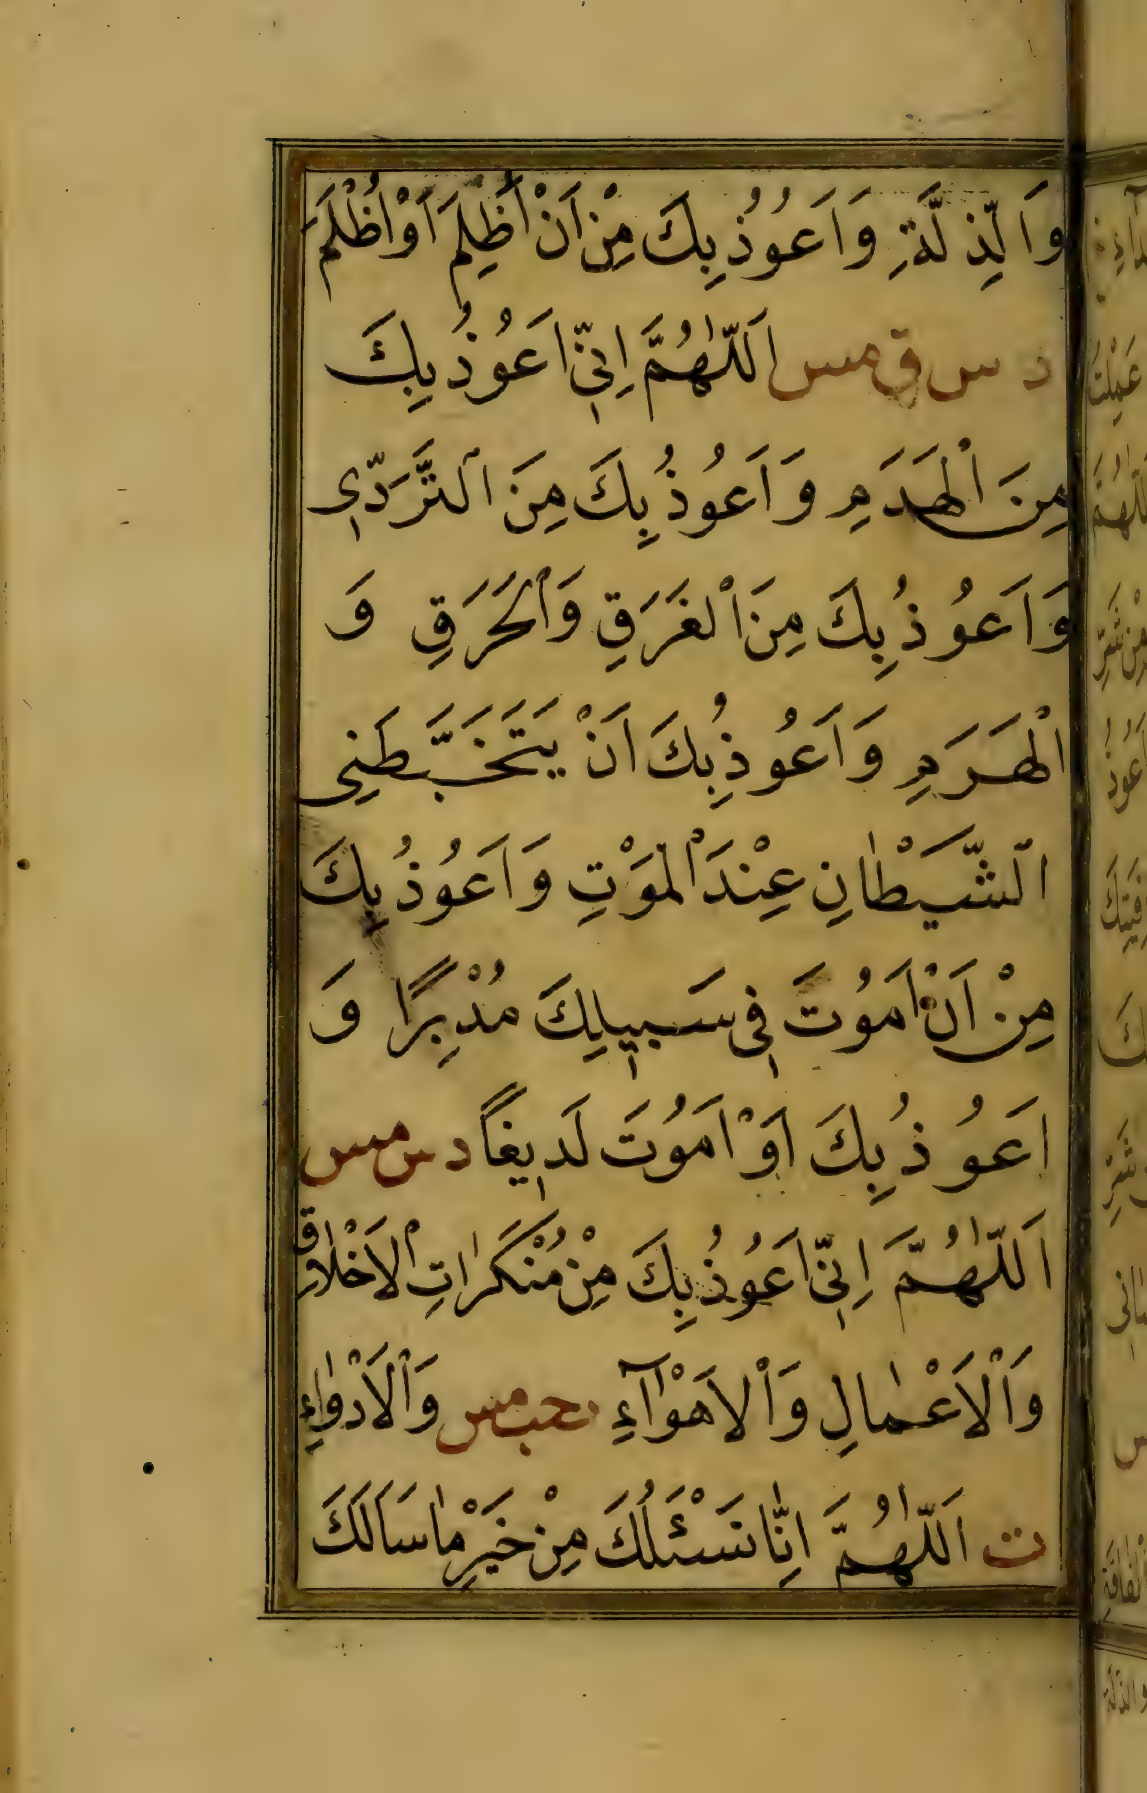 وَالذِّلَّةِ وَاَعُوذُ بِكَ مِنْ اَنْ اُظْلِمَ اَوْ اُظْلَمَ
د س ق مس اَللّٰهُمَّ اِنّٖي اَعُوذُ بِكَ
مِنَ الْهَدَمِ وَاَعُوذُ بِكَ مِنَ التَّرَدّٖي
وَاَعُوذُ بِكَ مِنَ الْغَرَقِ وَالْحَرَقِ وَ
الْهَرَمِ وَاَعُوذُ بِكَ اَنْ يَتَخَبَّطَنِى
الشَّيْطَانِ عِنْدَ الْمَوْتِ وَاَعُوذُ بِكَ
مِنْ اَنْ اَمُوتَ فٖي سَبيلِكَ مُدْبِرًا وَ
اَعُوذُ بِكَ اَوْ اَمُوتَ لَدٖيغًا د س مس
اَللّٰهُمَّ اِنّٖي اَعُوذُ بِكَ مِنْ مُنْكَرَاتِ الْاَخْلَاقِ
وَالْاَعْمَالِ وَالْاَهْوَآءِ حب مس وَالْاَدْوَاءِ
ت اَللّٰهُمَّ اِنَّا نَسْئَلُكَ مِنْ خَيْرِ مَا سَاَلَكَ